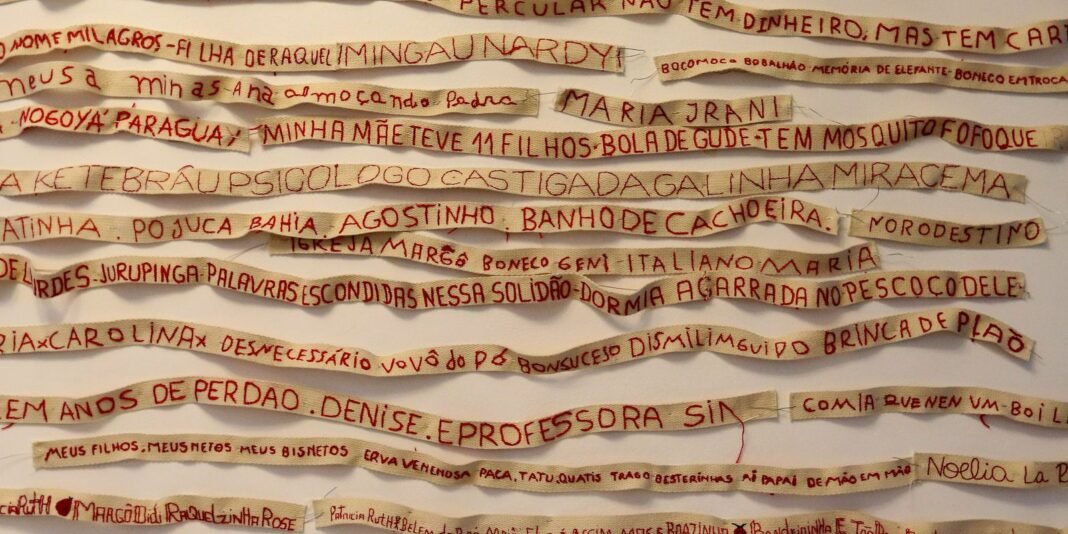 PERCULAR NÃO TEM DINHEIRO, MAS TEM CAR
O NOME MILAGROS-FILHA DE RAQUEL MINGAU NARDY
BOCOMOCO BOBALHÃO-MEMÓRIA DE ELEFANTE-BONECO EM TROCA
MEUSA minas Ana almoçando Pedra
MARIA IRANI
NOGOYÁ PARAGUAY
MINHA MÃE TEVE 11 FILHOS-BOLA DE GUDE-TEM MOSQUITO FOFOQUE
A KETEBRÂU PSICOLOGO CASTIGADA GALINHA MIRACEMA
ATINHA. POJUCA BAHIA. AGOSTINHO. BANHO DE CACHOEIRA.
NORODESTINO
IGREJA MARGÔ BONECO GENI-ITALIANO MARIA
DE LURDES-JURUPINGA-PALAVRAS ESCONDIDAS NESSA SOLIDÃO-DORMIA AGARRADA NO PESCOÇO DELE-
RIAxCAROLINAx DESNECESSÁRIO VOVÔ do Pó BONSUCESO DISMILIMGUIDO BRINCA DE PIAÕ
EM ANOS DE PERDAO. DENISE. E PROFESSORA SIM
COMIA QUE NEN UM-BOI L
MEUS FILHOS. MEUS NETOS MEUS BISNETOS ERVA VENENOSA PACA, TATU, QUATIS TRAGO BESTERINHAS AI PAPAI DE MÃO EM MÃO
NOÉLIA LA
RUTH MARGÔ Didi RAQUELZINHA ROSE
PATRICIA RUTH BELEM